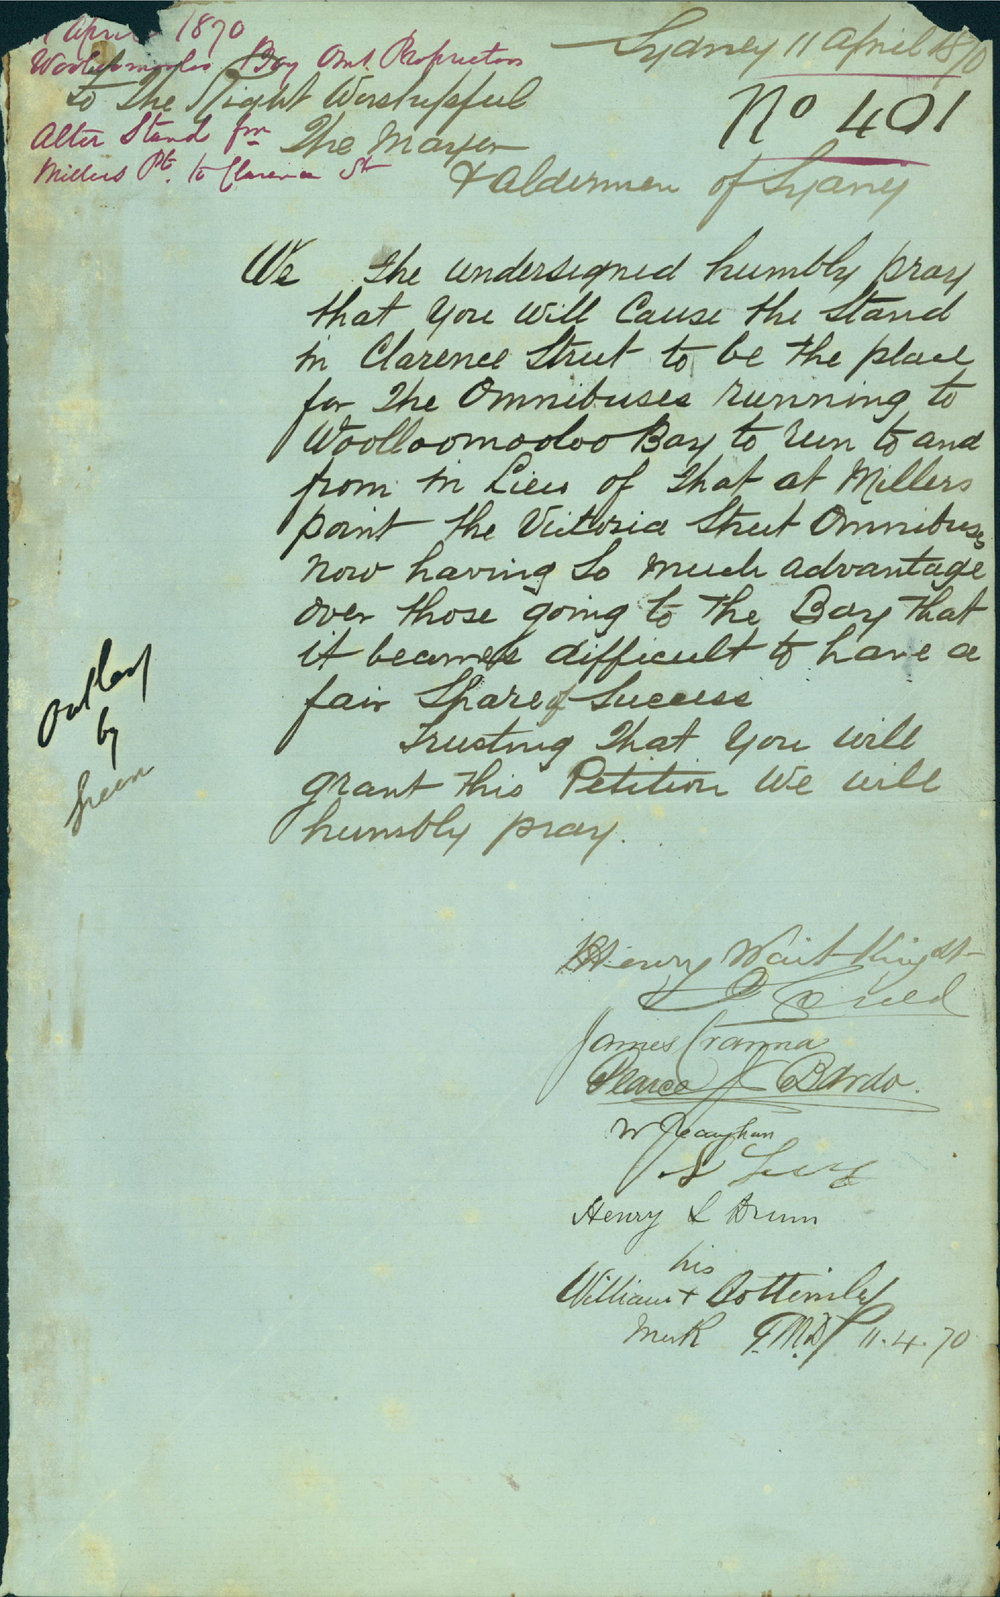 April 1870
Woolloomooloo Bay Omn. Proprietors
Alter Stand frm
Millers Pt. to Clarence St
Sydney 11 April 1870
No 401
To The Right Worshipful
The Mayor
& Aldermen of Sydney
We the undersigned humbly pray
that you will Cause the Stand
in Clarence Street to be the place
for The Omnibuses running to
Woolloomooloo Bay to run to and
from in Lieu of That at Millers
point the Victoria Street Omnibuses
now having So much advantage
over those going to The Bay That
it becomes difficult to have a
fair Share of Success
Trusting That you will
grant this Petition We will
humbly pray.
by
Green
Henry Wait Knight
Creed
James Cranna
Pearce J Bardo.
W
Henry L Drum
his
William + Bottimley
Mark 11.4.70